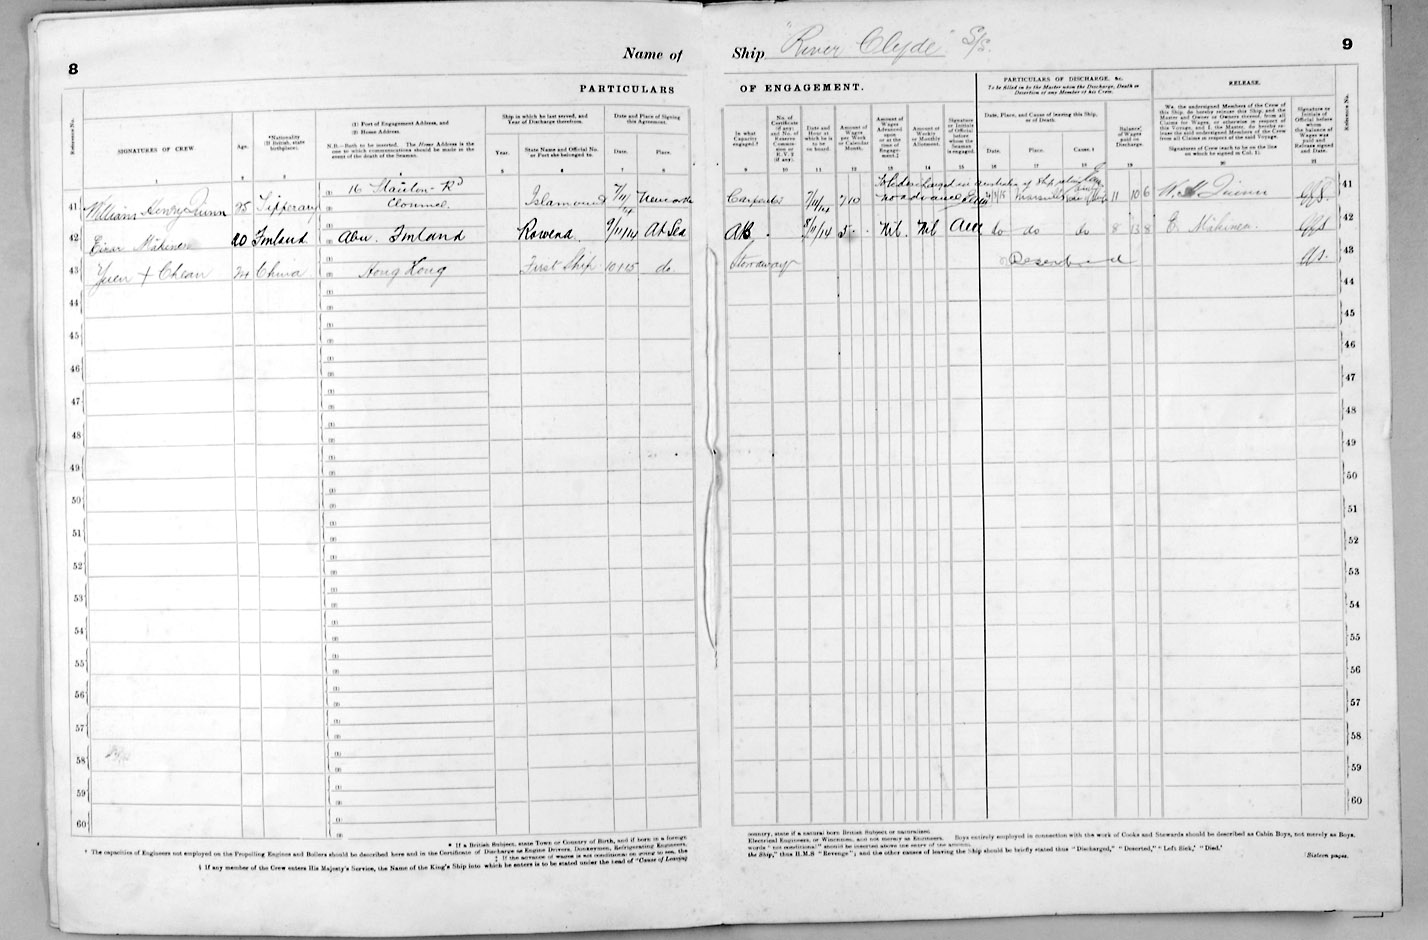 8
Name of
Ship "River Clyde" S/s.
9
PARTICULARS
OF ENGAGEMENT.
PARTICULARS OF DISCHARGE, &c.
To be filled in by the Master upon the Discharge, Death or
Desertion of any Member of his Crew.
RELEASE.
Reference No.
SIGNATURES OF CREW
Age.
*Nationality
(If British, state
birthplace).
(1) Port of Engagement Address, and
(2) Home Address.
N.B.—Both to be inserted. The Home Address is the
one to which communications should be made in the
event of the death of the Seaman.
Ship in which he last served, and
Year of Discharge therefrom.
Year.
State Name and Official No.
or Port she belonged to.
Date and Place of Signing
this Agreement.
Date.
Place.
In what
Capacity
engaged.†
No. of
Certificate
(if any)
and No. of
Reserve
Commis-
sion or
R.V. 2
(if any).
Date and
Hour at
which he is
to be
on board.
Amount of
Wages
per Week
or Calendar
Month.
Amount of
Wages
Advanced
upon
or at the
time of
Engage-
ment.‡
Amount of
Weekly
or Monthly
Allotment.
Signature
or Initials
of Official
before
whom the
Seaman
is engaged.
Date, Place, and Cause of leaving this Ship,
or of Death.
Date.
Place.
Cause.§
Balance
of Wages
paid on
Discharge.
We, the undersigned Members of the Crew of
this Ship, do hereby release this Ship, and the
Master and Owner or Owners thereof, from all
Claims for Wages, or otherwise in respect of
this Voyage, and I, the Master, do hereby re-
lease the said undersigned Members of the Crew
from all Claims in respect of the said Voyage.
Signatures of Crew (each to be on the line
on which he signed in Col. 1).
Signature or
Initials of
Official before
whom
the balance of
Wages was
paid and
Release signed
and Date.
Reference No.
1 2 3 4 5 6 7 8
9 10 11 12 13 14 15 16 17 18 19 20 21
41 William Henry Quinn 25 Tipperary (1) 16 Road (2) Clonmel. Islamount 7/11/14 Newcastle Carpenter 7/11/14 7 10 no advance 11 10 6 W. H. Quinn 41
42 Einar Mäkinen 20 Finland Abu. Finland Rowena 9/11/14 At Sea AB. 9/11/14 5 - - Nil. Nil do do do 8 13 8 E. Mäkinen. 42
43 Yuen + Chean 24 China Hong Kong First Ship 10 1 15 do Stowaway Deserted 43
44 44
45 45
46 46
47 47
48 48
49 49
50 50
51 51
52 52
53 53
54 54
55 55
56 56
57 57
58 58
59 59
60 60
* If a British Subject, state Town or Country of Birth, and if born in a foreign
country, state if a natural born British Subject or naturalized.
† The capacities of Engineers not employed on the Propelling Engines and Boilers should be described here and in the Certificate of Discharge as Engine Drivers, Donkeymen, Refrigerating Engineers,
Electrical Engineers, or Winchmen, and not merely as Engineers. Boys entirely employed in connection with the work of Cooks and Stewards should be described as Cabin Boys, not merely as Boys.
‡ If the advance of wages is not conditional on going to sea, the
words "not conditional" should be inserted above the entry of the amount.
§ If any member of the Crew enters His Majesty's Service, the Name of the King's Ship into which he enters is to be stated under the head of "Cause of Leaving
the Ship," thus H.M.S "Revenge"; and the other causes of leaving the Ship should be briefly stated thus "Discharged," "Deserted," "Left Sick," "Died."
Sixteen pages.